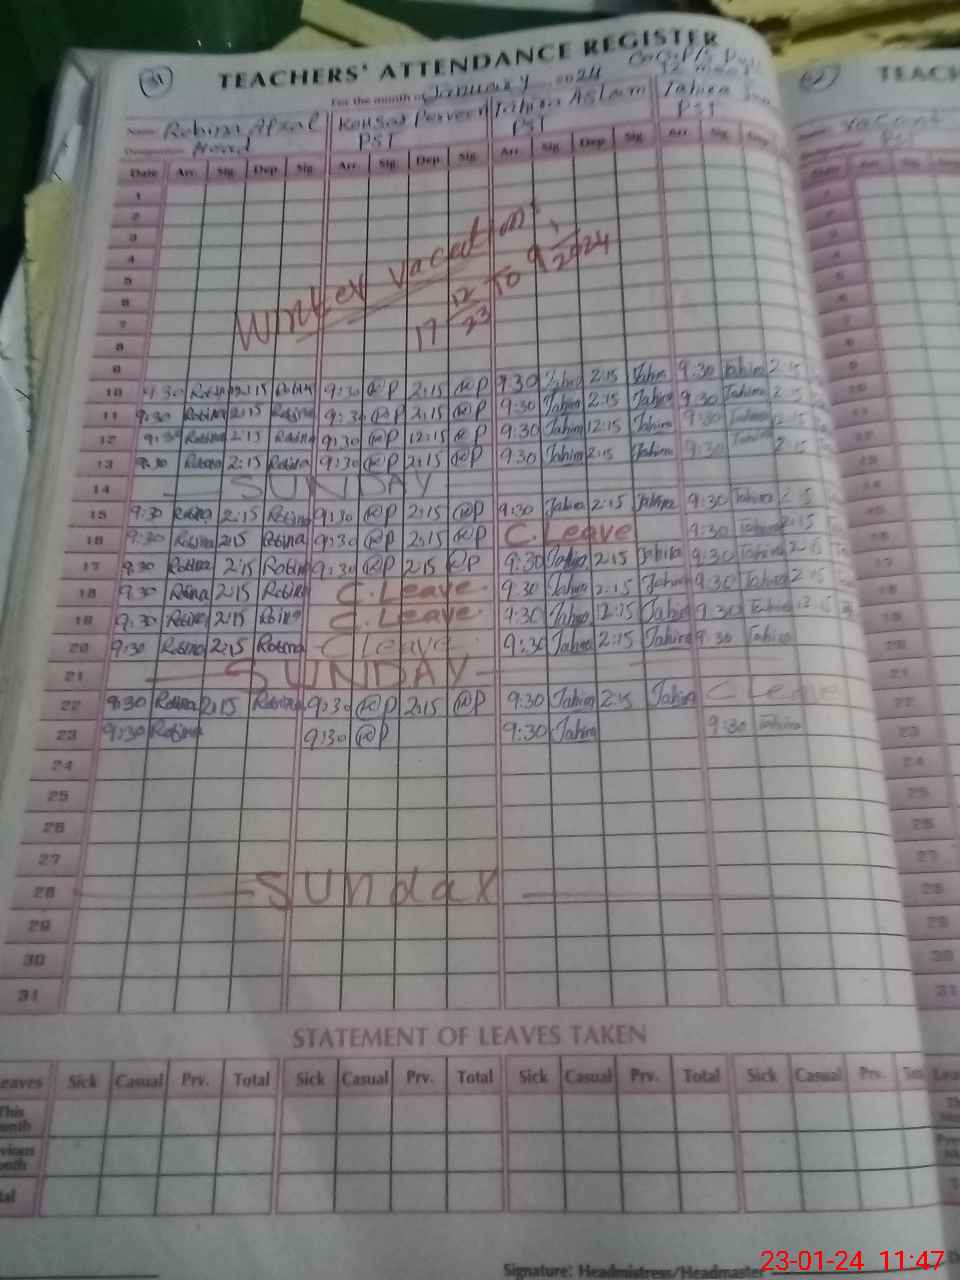 31 TEACHERS' ATTENDANCE REGISTER
For the month of January 2024
Name Robina Afzal Kousar Perveen Tahira Aslam Tahira
Designation Head PST PST PST
Date Arr. Sig. Dep. Sig. Arr. Sig. Dep. Sig. Arr. Sig. Dep. Sig. Arr. Sig.
1
2
3
4
5
6
7
8
9
Winter vacation
17 12/23 To 9 1/2024
10 9:30 Robina 2:15 Robina 9:30 @P 2:15 @P 9:30 Tahira 2:15 Tahira 9:30 Tahira 2:15
11 9:30 Robina 2:15 Robina 9:30 @P 2:15 @P 9:30 Tahira 2:15 Tahira 9:30 Tahira 2:15
12 9:30 Robina 2:15 Robina 9:30 @P 12:15 @P 9:30 Tahira 12:15 Tahira 9:30 Tahira 12:15
13 9:30 Robina 2:15 Robina 9:30 @P 2:15 @P 9:30 Tahira 2:15 Tahira 9:30 Tahira 2:15
14 SUNDAY
15 9:30 Robina 2:15 Robina 9:30 @P 2:15 @P 9:30 Tahira 2:15 Tahira 9:30 Tahira 2:15
16 9:30 Robina 2:15 Robina 9:30 @P 2:15 @P C.Leave 9:30 Tahira 2:15
17 9:30 Robina 2:15 Robina 9:30 @P 2:15 @P 9:30 Tahira 2:15 Tahira 9:30 Tahira 2:15
18 9:30 Robina 2:15 Robina C.Leave. 9:30 Tahira 2:15 Tahira 9:30 Tahira 2:15
19 9:30 Robina 2:15 Robina C.Leave. 9:30 Tahira 12:15 Tahira 9:30 Tahira 12:15
20 9:30 Robina 2:15 Robina C Leave. 9:30 Tahira 2:15 Tahira 9:30 Tahira
21 SUNDAY
22 9:30 Robina 2:15 Robina 9:30 @P 2:15 @P 9:30 Tahira 2:15 Tahira C Leave
23 9:30 Robina 9:30 @P 9:30 Tahira 9:30 Tahira
24
25
26
27
28 SUnday
29
30
31
STATEMENT OF LEAVES TAKEN
Leaves Sick Casual Prv. Total Sick Casual Prv. Total Sick Casual Prv. Total Sick Casual Prv.
This
Signature: Headmistress/Headmaster
23-01-24 11:47